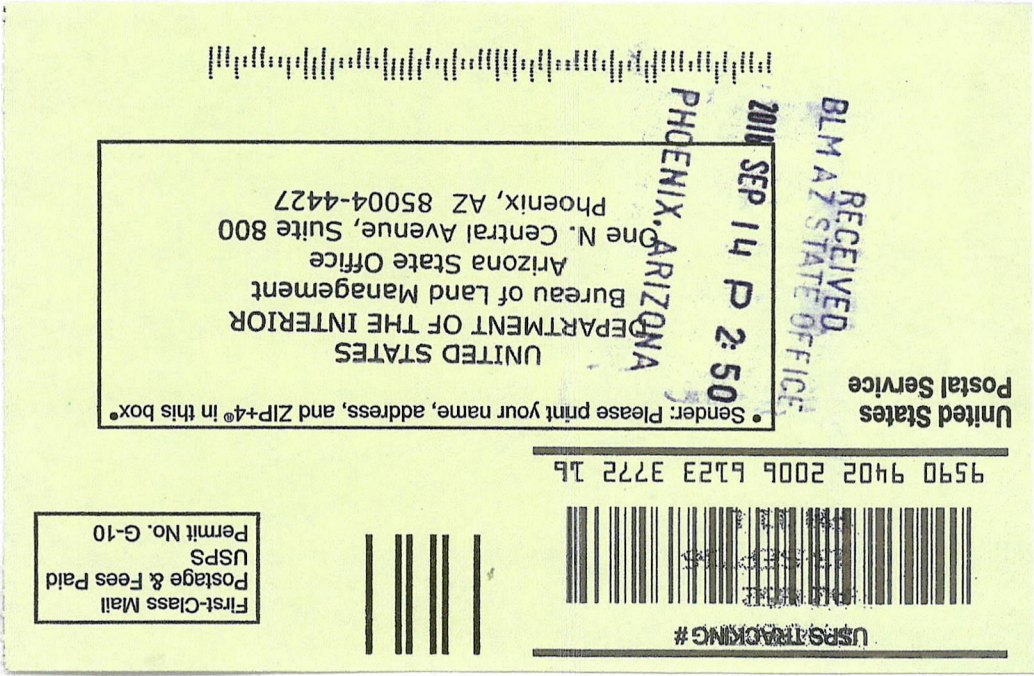 USPS TRACKING #
9590 9402 2006 6123 3772 16
First-Class Mail
Postage & Fees Paid
USPS
Permit No. G-10
United States
Postal Service
• Sender: Please print your name, address, and ZIP+4® in this box•
UNITED STATES
DEPARTMENT OF THE INTERIOR
Bureau of Land Management
Arizona State Office
One N. Central Avenue, Suite 800
Phoenix, AZ 85004-4427
RECEIVED
BLM AZ STATE OFFICE
2018 SEP 14 P 2:50
PHOENIX, ARIZONA